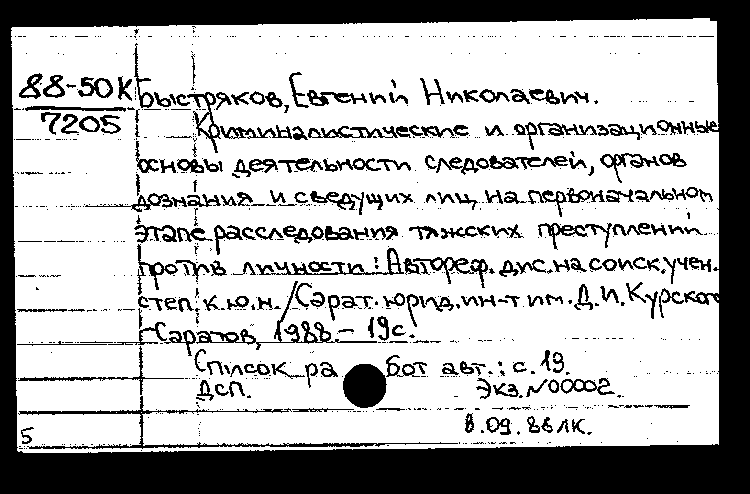 88-50К Быстряков, Евгений Николаевич.
7205 Криминалистические и организационные
основы деятельности следователей, органов
дознания и сведущих лиц на первоначальном
этапе расследования тяжских преступлений
против личности: Автореф. дис. на соиск. учен.
степ. к.ю.н. / Сарат. юрид. ин-т им. Д.И. Курского
-Саратов, 1988.- 19с.
Список работ авт.: с. 19.
ДСП. Экз. №00002.
5 8.09.88ЛК.